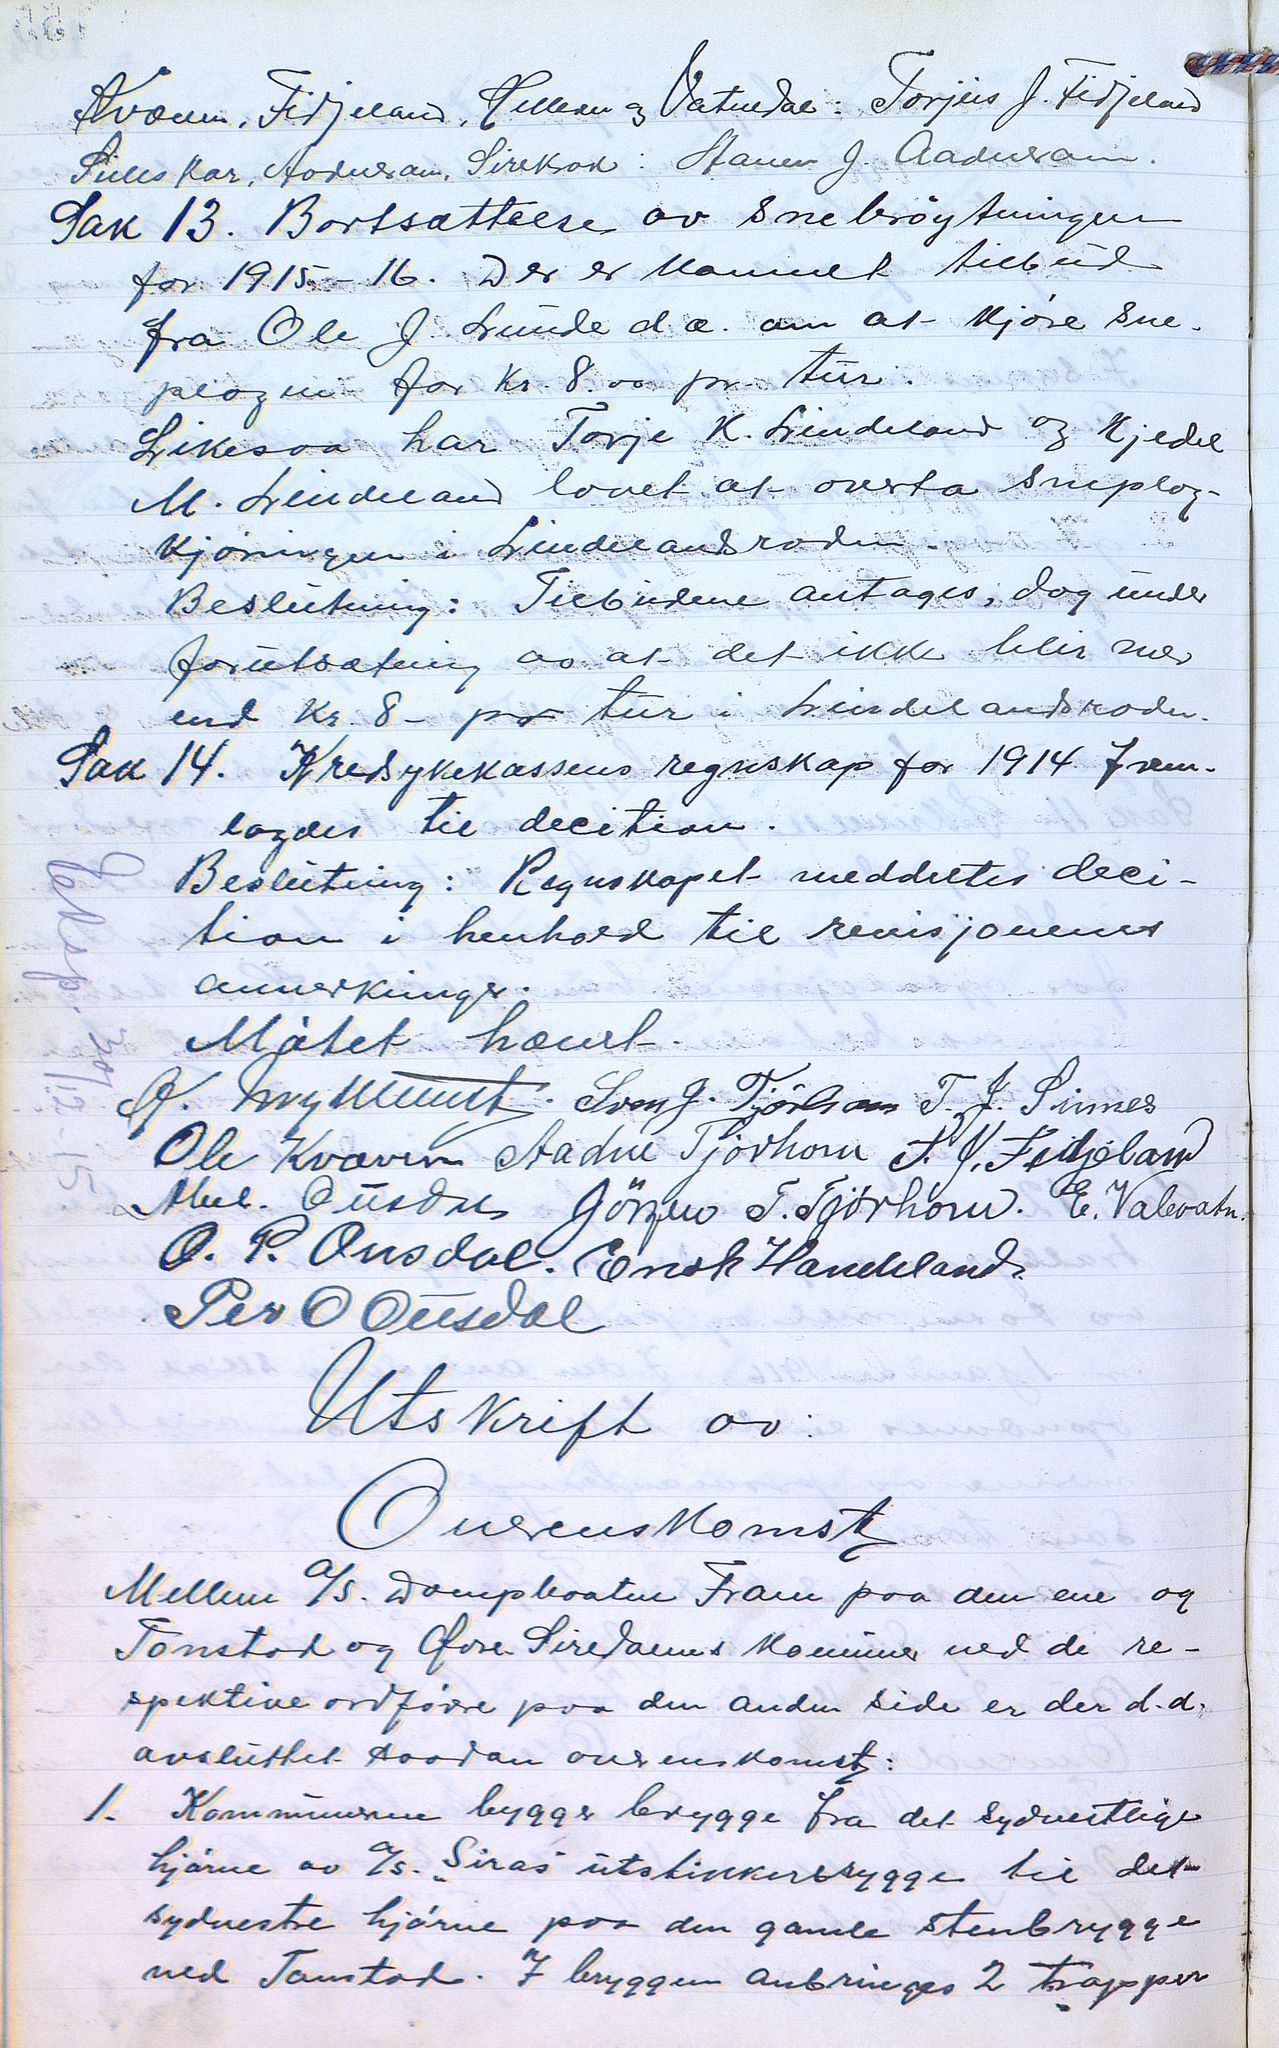 Kvæven, Fidjeland, Qvellen og Vatnedal: Torjus J. Fidjeland
Suleskar, Aadneram, Sirekrok: Hauen J. Aadneram.
Sak 13. Bortsættelse av snebröytningen
for 1915-16. Der er kommet tilbud
fra Ole J. Lunde d.æ. om at kjöre sne-
plogen for kr. 8.00 pr. tur.
Likesaa har Torje K. Lindeland og Kjedel
M. Lindeland lovet at overta sneplog-
kjöringen i Lindelandsroden.
Beslutning: Tilbudene antages, dog under
forutsætning av at det ikke blir mer
end kr. 8- pr tur i Lindelandsroden.
Sak 14. Kredsykekassens regnskap for 1914 frem-
lagdes til decition.
Beslutning: Regnskapet meddeltes deci-
tion i henhold til revisjonens
anmerkninger.
Mötet hævet.
Eksp. 30/12-15
Sven J. Tjörhom T. J. Sinnes
Ole Kvæven Aadne Tjörhom T. J. Fidjeland
Mel. Ousdal Jörgen T. Tjörhom. E. Valevatn.
O. P. Ousdal. Enok Handeland.
Per O Ousdal
Utskrift av:
Overenskomst
Mellem a/s. Dampbaaten Fram paa den ene og
Tonstad og Øvre Siredalens kommuner ved de re-
spektive ordförere paa den anden side er der d.d.
avsluttet saadan overenskomst:
1. Kommunerne bygger brygge fra det sydvestlige
hjörne av a/s. "Siras" utstikkerbrygge til det
sydvestre hjörne paa den gamle stenbrygge
ved Tonstad. I bryggen anbringes 2 trapper